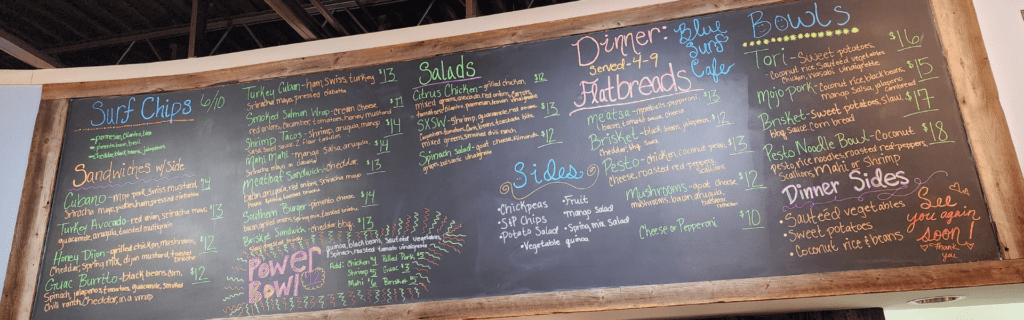 Surf Chips 6/10
parmesan, cilantro, lime
cheddar, black beans, jalapeños
Sandwiches w/Side
Cubano - mojo pork, swiss, mustard, $14
Sriracha mayo, ham, pressed ciabatta
Turkey Avocado - red onion, sriracha mayo, $13
guacamole, arugula, toasted multigrain
Honey Dijon - grilled chicken, mushrooms, $12
Cheddar, spring mix, dijon mustard, toasted
Guac Burrito - black beans, corn, $12
Spinach, jalapeños, tomatoes, guacamole, smoked
chili ranch, cheddar, in a wrap
Turkey Cuban - ham, swiss, turkey $13
Sriracha mayo, pressed ciabatta
Smoked Salmon Wrap - cream cheese $11
red onion, cucumbers, tomatoes, honey mustard
Shrimp Tacos - shrimp, arugula, mango $14
salsa, 2 flour tortillas
Mahi Mahi - mango salsa, arugula, $14
Meatloaf Sandwich - cheddar, $13
arugula, red onion, sriracha mayo
Southern Burger - pimento cheese $14
Brisket Sandwich - cheddar, $13
Power Bowl
quinoa, black beans, sauteed vegetables
spinach, roasted tomato vinaigrette
Add: Chicken 4 Pulled Pork 3
Shrimp 5 Guac 3
Mahi 6 Brisket 5
Salads
Citrus Chicken - grilled chicken, $12
mixed greens, avocado, red onion, carrots,
tomatoes, cilantro, parmesan, lemon vinaigrette
SXSW - Shrimp, guacamole, $13
mixed greens, smoked chili ranch
Spinach salad - goat cheese, almonds, $12
green, balsamic vinaigrette
Sides
• Chickpeas
• S+P Chips
• Potato Salad
• Vegetable
• Fruit
• mango Salad
• Spring mix Salad
quinoa
Dinner:
Served - 4-9
Flatbreads
meatsa - meatballs, pepperoni $13
bacon, smoked cheese, sauce
Brisket - black beans, jalapeños, $12
cheddar, bbq sauce
Pesto - chicken, coconut pesto, $13
cheese, roasted red peppers
Mushrooms - goat cheese $12
mushrooms, bacon, arugula
Cheese or Pepperoni $10
Blue
Surf
Cafe
Bowls
Tori - Sweet potatoes, $16
Coconut rice, Sauteed vegetables
Chicken, wasabi vinaigrette
Mojo pork - Coconut rice, black beans, $15
mango Salsa, jalapeños
cornbread
Brisket - Sweet potatoes, Slaw, $17
bbq sauce, corn bread
Pesto Noodle Bowl - Coconut $18
pesto, rice noodles, roasted red peppers,
Scallions, Mahi or Shrimp
Dinner Sides
• Sauteéd vegetables
• Sweet potatoes
• Coconut rice & beans
See
you again
soon!
thank
you